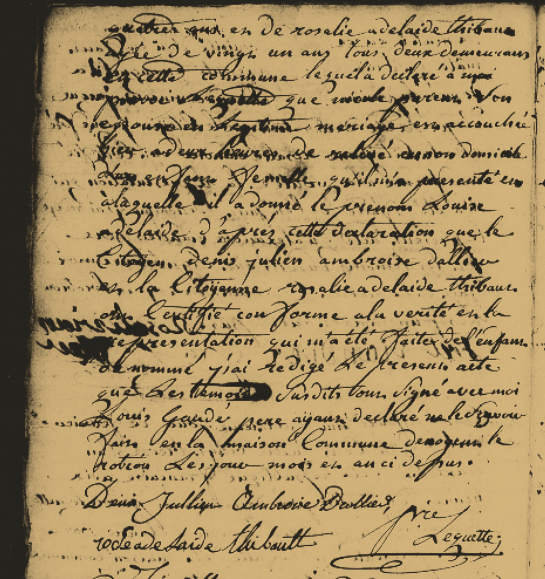 quatres ans, et de rosalie adelaide thibaut
agée de vingt un ans tous deux demeurant
en cette commune lequel a déclaré a moi
pierre Lequette que
son
epouse en légitime mariage, est accouchée
hier a deux heures de relevé en son domicile
d'un enfant femelle qu'il m'a presenté et
a laquelle il a donné le prenom Louise
adelaide, d'après cette declaration que le
Citoyen denis julien ambroise dallier
et la Citoyenne rosalie adelaide thibaut
ont Certifié conforme a la verité et la
representation qui m'a été faite de l'enfant
denommé j'ai rédigé Le present acte
que Les temoins susdits ont signé avec moi
Louis pere ayant declaré ne le savoir
fait en la maison Commune de nogent le
rotrou Les jour mois et an ci depus.
Denis Jullien Ambroise Dallier,
rosle adelaide thibault
pre Lequette